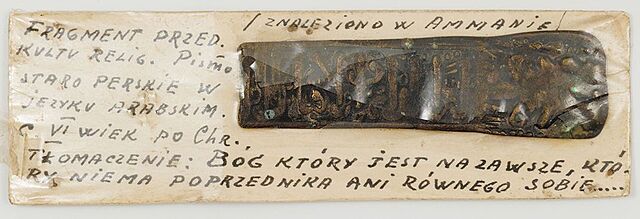 / ZNALEZIONO W AMMANIE /
FRAGMENT PRZED.
KULTU RELIG. PISMO
STARO PERSKIE W
JĘZYKU ARABSKIM.
C. VI WIEK PO CHR.
TŁOMACZENIE: BÓG KTÓRY JEST NA ZAWSZE, KTÓ-
RY NIEMA POPRZEDNIKA ANI RÓWNEGO SOBIE.....